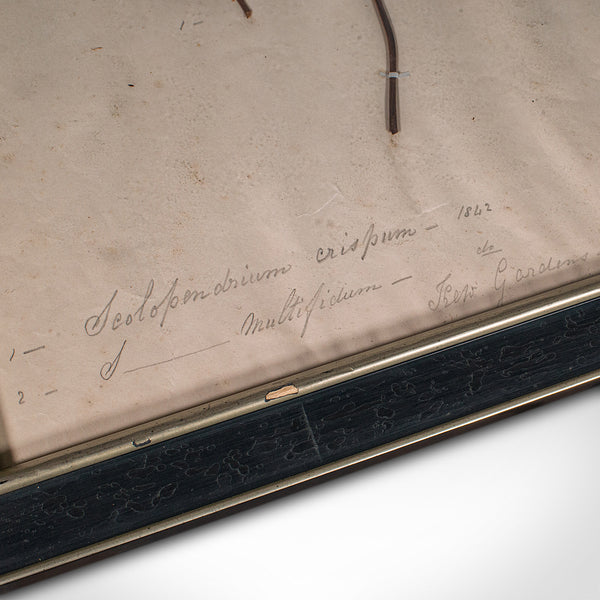 1 -
1 - Scolopendrium crispum - 1842
2 - S——— Multifidum - do
Kew Gardens